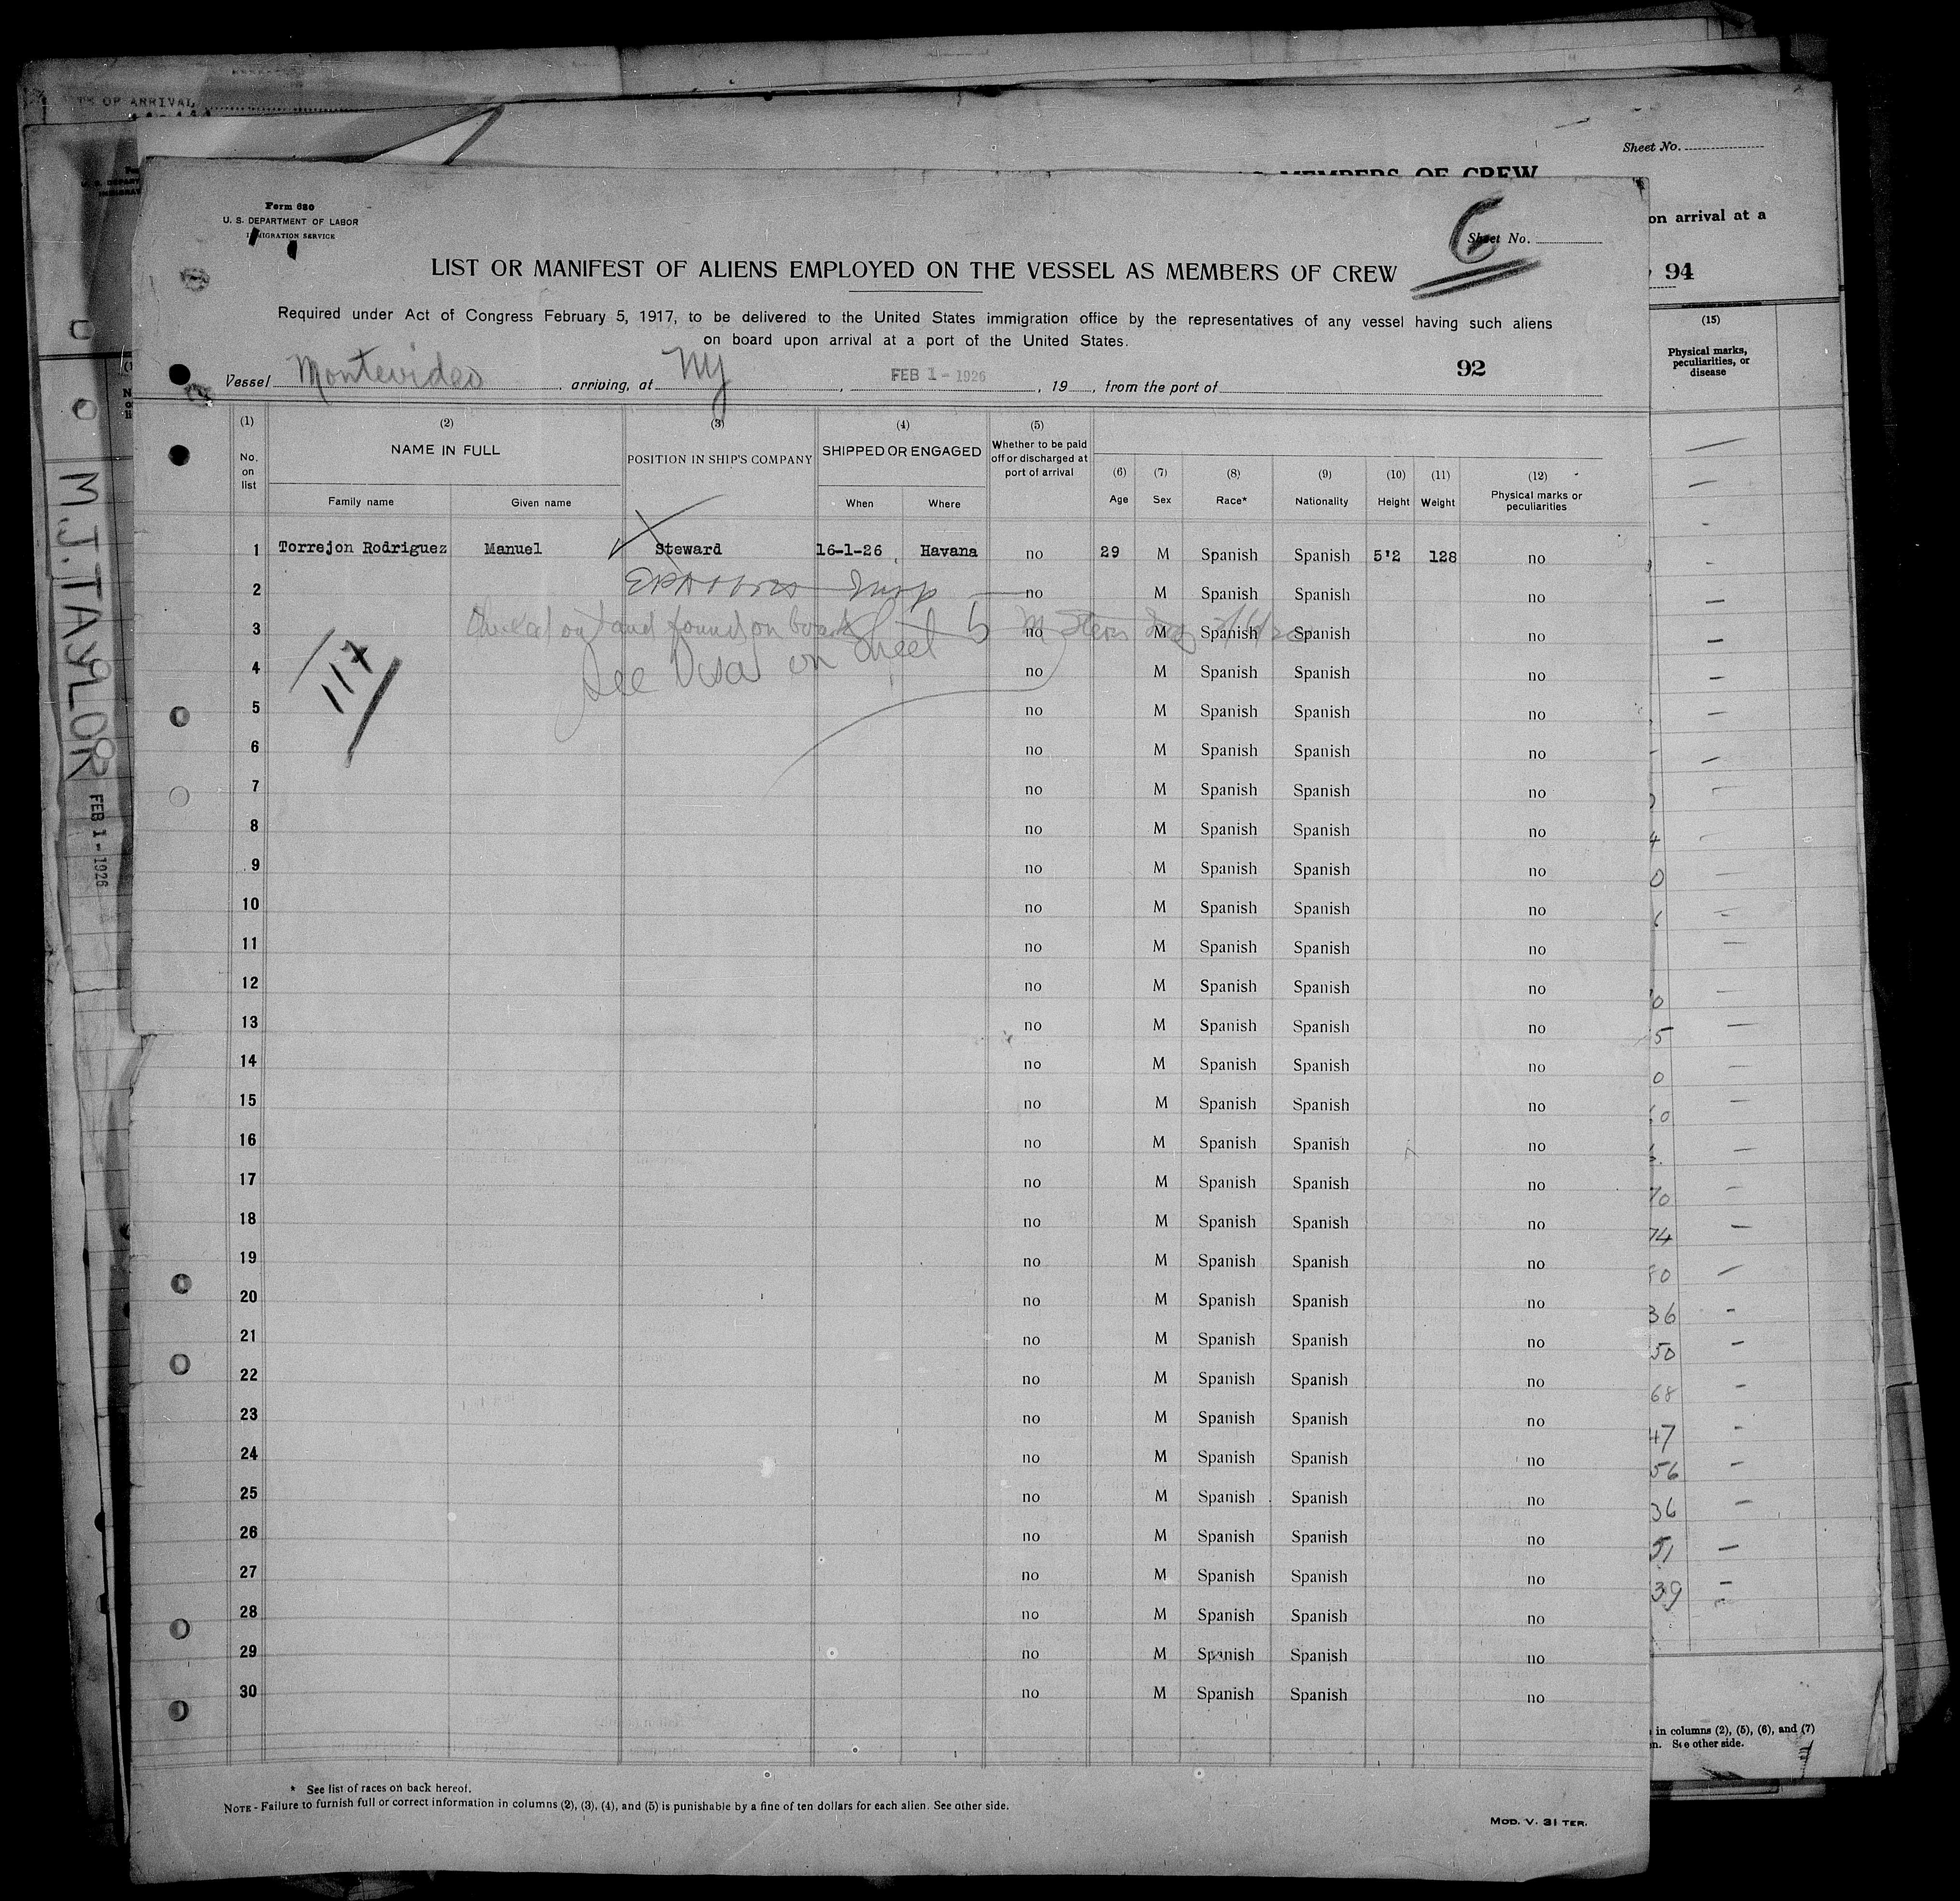 TE OF ARRIVAL
Sheet No.
MEMBERS OF CREW
on arrival at a
94
(15)
Physical marks,
peculiarities, or
disease
M.J. TAYLOR
FEB 1 - 1926
Form 680
U. S. DEPARTMENT OF LABOR
IMMIGRATION SERVICE
6
Sheet No.
LIST OR MANIFEST OF ALIENS EMPLOYED ON THE VESSEL AS MEMBERS OF CREW
Required under Act of Congress February 5, 1917, to be delivered to the United States immigration office by the representatives of any vessel having such aliens
on board upon arrival at a port of the United States.
92
Vessel Montevideo, arriving, at NY, FEB 1 - 1926, 19, from the port of
(1) (2) (3) (4) (5)
No. on list NAME IN FULL POSITION IN SHIP'S COMPANY SHIPPED OR ENGAGED Whether to be paid off or discharged at port of arrival
(6) (7) (8) (9) (10) (11) (12)
Family name Given name When Where Age Sex Race* Nationality Height Weight Physical marks or peculiarities
1 Torrejon Rodriguez Manuel Steward 16-1-26 Havana no 29 M Spanish Spanish 5'2 128 no
2 no M Spanish Spanish no
3 out and found on board no M Spanish Spanish no
See Visa on Sheet 5
117
4 no M Spanish Spanish no
5 no M Spanish Spanish no
6 no M Spanish Spanish no
7 no M Spanish Spanish no
8 no M Spanish Spanish no
9 no M Spanish Spanish no
10 no M Spanish Spanish no
11 no M Spanish Spanish no
12 no M Spanish Spanish no
13 no M Spanish Spanish no
14 no M Spanish Spanish no
15 no M Spanish Spanish no
16 no M Spanish Spanish no
17 no M Spanish Spanish no
18 no M Spanish Spanish no
19 no M Spanish Spanish no
20 no M Spanish Spanish no
21 no M Spanish Spanish no
22 no M Spanish Spanish no
23 no M Spanish Spanish no
24 no M Spanish Spanish no
25 no M Spanish Spanish no
26 no M Spanish Spanish no
27 no M Spanish Spanish no
28 no M Spanish Spanish no
29 no M Spanish Spanish no
30 no M Spanish Spanish no
in columns (2), (5), (6), and (7)
n. See other side.
* See list of races on back hereof.
NOTE - Failure to furnish full or correct information in columns (2), (3), (4), and (5) is punishable by a fine of ten dollars for each alien. See other side.
MOD. V. 31 TER.